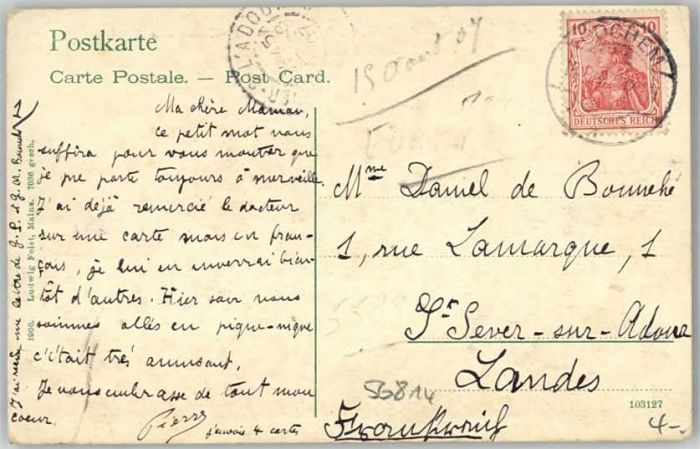 Postkarte
Carte Postale. — Post Card.
15 août 07
10 10
COCHEM
DEUTSCHES REICH
Ma chère Maman,
ce petit mot vous
suffira pour vous montrer que
je me porte toujours à merveille.
J'ai déjà remercié le docteur
sur une carte mais en fran-
çais, je lui en enverrai bien-
tôt d'autres. Hier soir nous
sommes allés en pique-nique
c'était très amusant.
Je vous embrasse de tout mon
coeur.
Pierre
j'envoie 4 cartes
J'ai reçu une lettre de J. P. et J. M.
1906. Ludwig Feist, Mainz. 7036 gesch.
Mme Daniel de Bonnehé
1, rue Lamarque, 1
St Sever-sur-Adour
Landes
Frankreich
56814
103127
4-